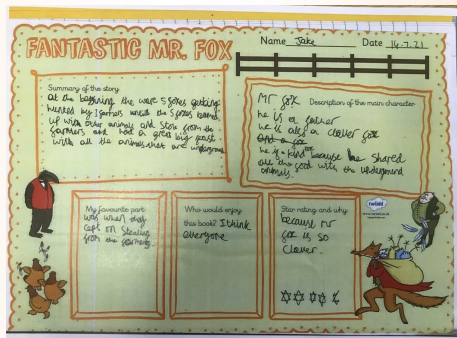 FANTASTIC MR. FOX
Name Jake Date 14.7.21
Summary of the story
at the beginning the were 5 foxes getting
hunted by 3 farmers untill the 5 foxes teamed
up with other animals and stole from the
farmers and had a great big feast
with all the animals that are underground
Mr fox Description of the main character
he is a father
he is also a clever fox
he is kind because he shared
all the food with the underground
animals.
My favourite part
was when they
cept on stealing
from the farmers
Who would enjoy
this book? I think
everyone
Star rating and why
because mr
fox is so
clever.
twinkl